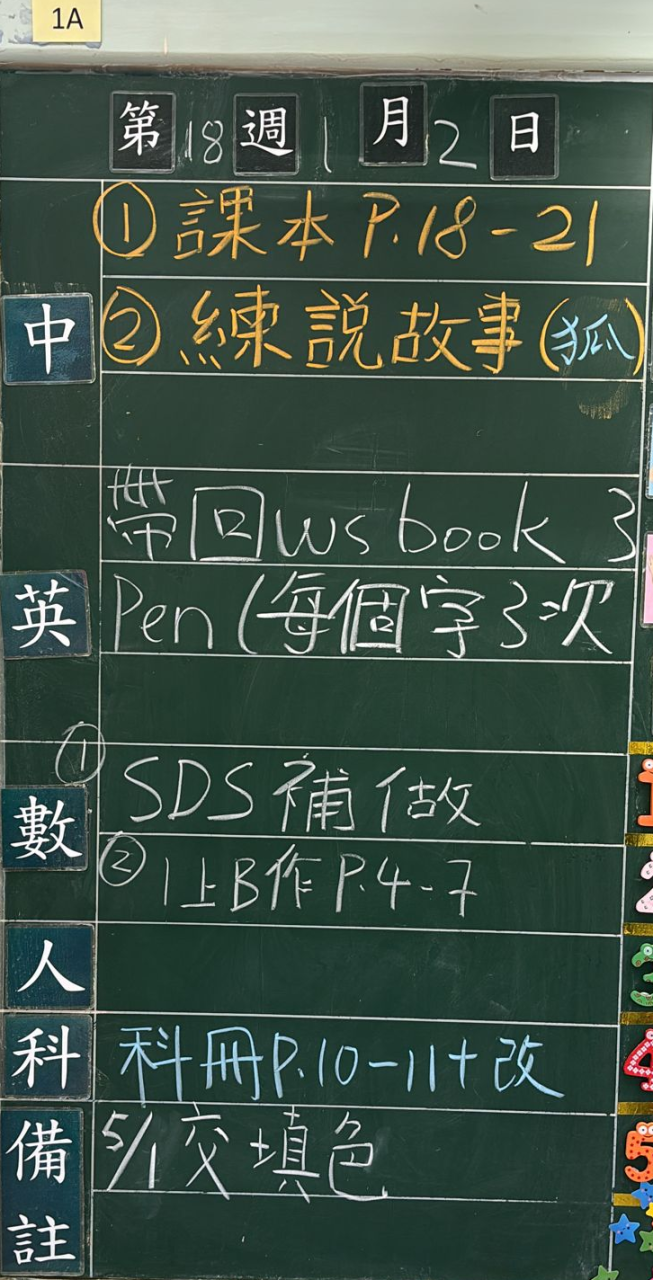 1A
第18週1月2日
中
①課本P.18-21
②練說故事(狐)
英
帶回ws book 3
Pen(每個字3次
數
①SDS補做
②1上B作P.4-7
人
科
科冊P.10-11+改
備註
5/1交填色
1
2
3
4
5